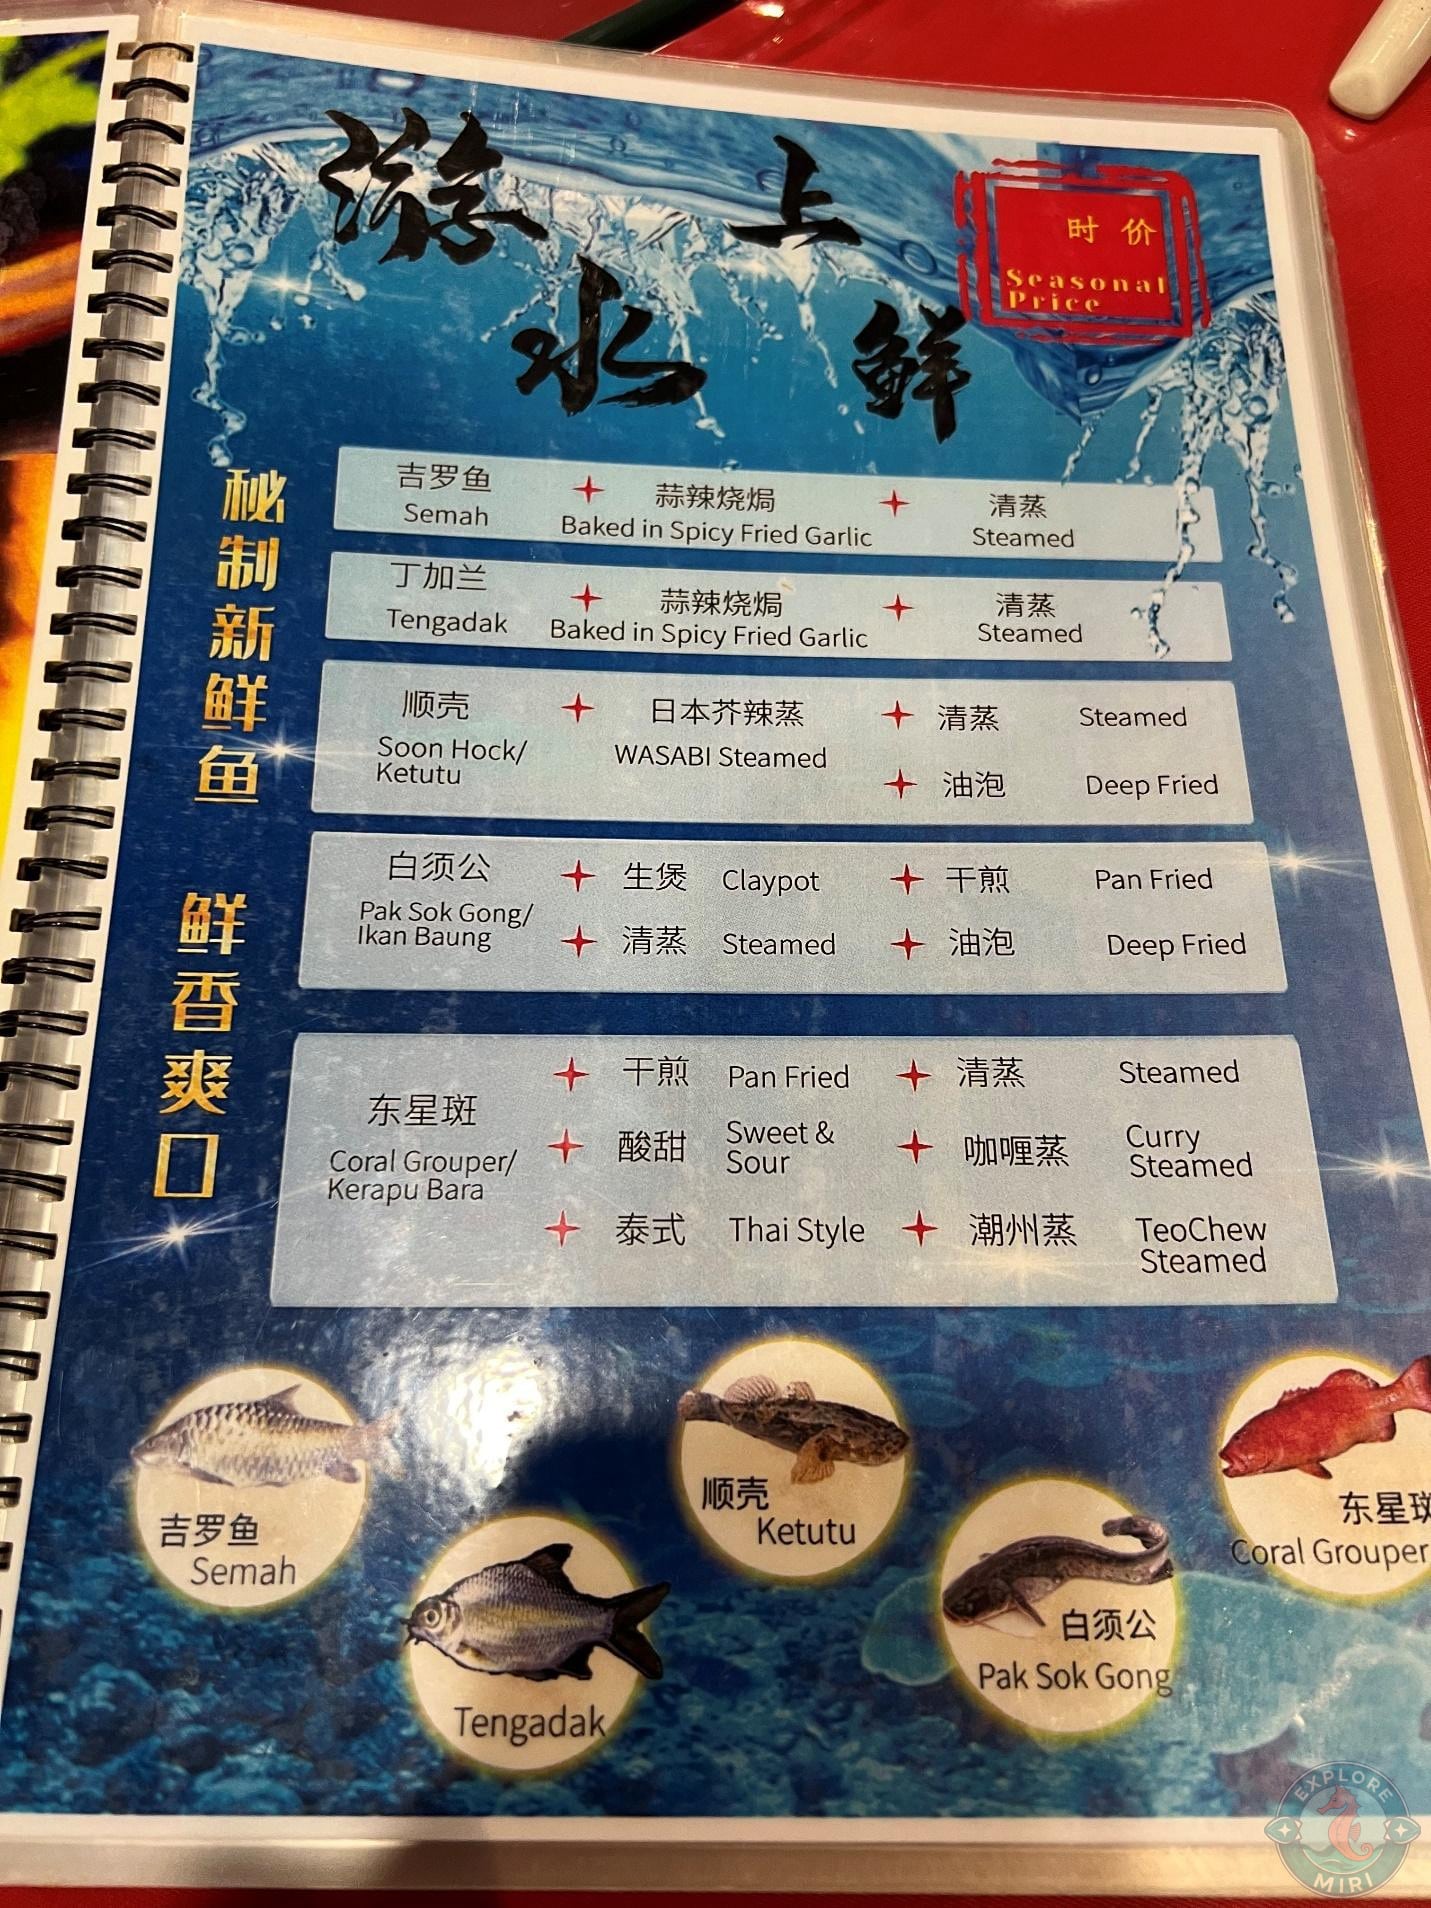 游水上鲜
时价
Seasonal
Price
秘制新鲜鱼 鲜香爽口
吉罗鱼
Semah
蒜辣烧焗
Baked in Spicy Fried Garlic
清蒸
Steamed
丁加兰
Tengadak
蒜辣烧焗
Baked in Spicy Fried Garlic
清蒸
Steamed
顺壳
Soon Hock/
Ketutu
日本芥辣蒸
WASABI Steamed
清蒸 Steamed
油泡 Deep Fried
白须公
Pak Sok Gong/
Ikan Baung
生煲 Claypot
干煎 Pan Fried
清蒸 Steamed
油泡 Deep Fried
东星斑
Coral Grouper/
Kerapu Bara
干煎 Pan Fried
清蒸 Steamed
酸甜 Sweet &
Sour
咖喱蒸 Curry
Steamed
泰式 Thai Style
潮州蒸 TeoChew
Steamed
吉罗鱼
Semah
Tengadak
顺壳
Ketutu
白须公
Pak Sok Gong
东星斑
Coral Grouper
EXPLORE
MIRI